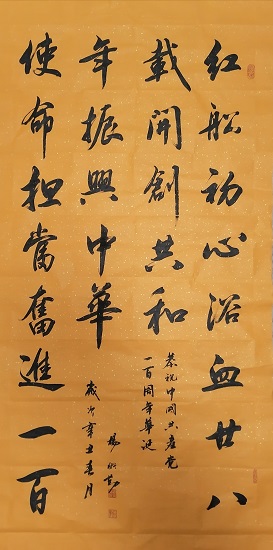 红船初心浴血廿八
載開創共和
使命担當奮進一百
年振興中華
恭祝中國共産党
一百周年華诞
歲次辛丑春月
楊